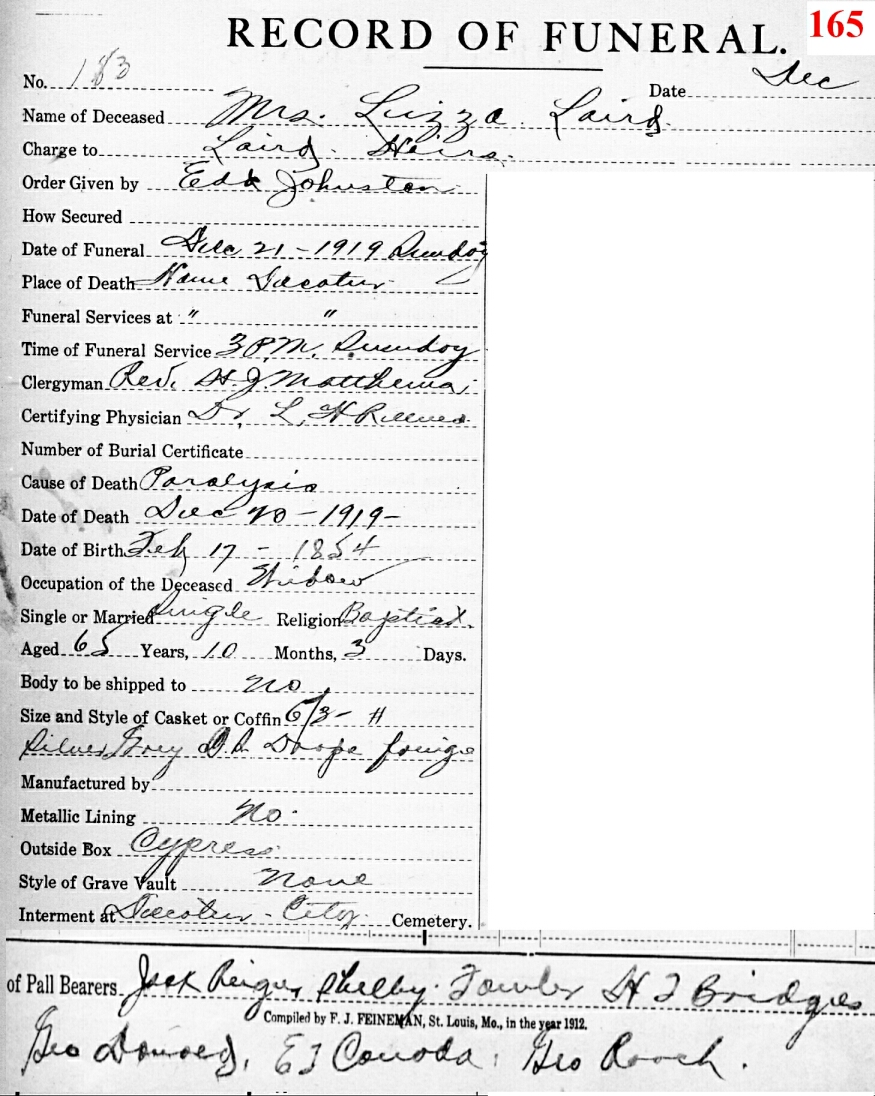 RECORD OF FUNERAL. 165
No. 183 Date Dec
Name of Deceased Mrs. Lizza Laird
Charge to Laird Heirs.
Order Given by Ed Johnston
How Secured
Date of Funeral Dec 21 - 1919 Sunday
Place of Death Home Decatur
Funeral Services at " "
Time of Funeral Service 3 P.M. Sunday
Clergyman Rev. H J Matthews
Certifying Physician Dr. L. H Reeves
Number of Burial Certificate
Cause of Death Paralysis
Date of Death Dec 20 - 1919 -
Date of Birth Feb 17 - 1854
Occupation of the Deceased Widow
Single or Married Single Religion Baptist.
Aged 65 Years, 10 Months, 3 Days.
Body to be shipped to No
Size and Style of Casket or Coffin 6/3 -
Silver Grey Drape
Manufactured by
Metallic Lining No.
Outside Box Cypress
Style of Grave Vault None
Interment at Decatur - City. Cemetery.
of Pall Bearers Jack Shelby Fowler H T Bridges
Compiled by F. J. FEINEMAN, St. Louis, Mo., in the year 1912.
Geo E T Geo Roach.